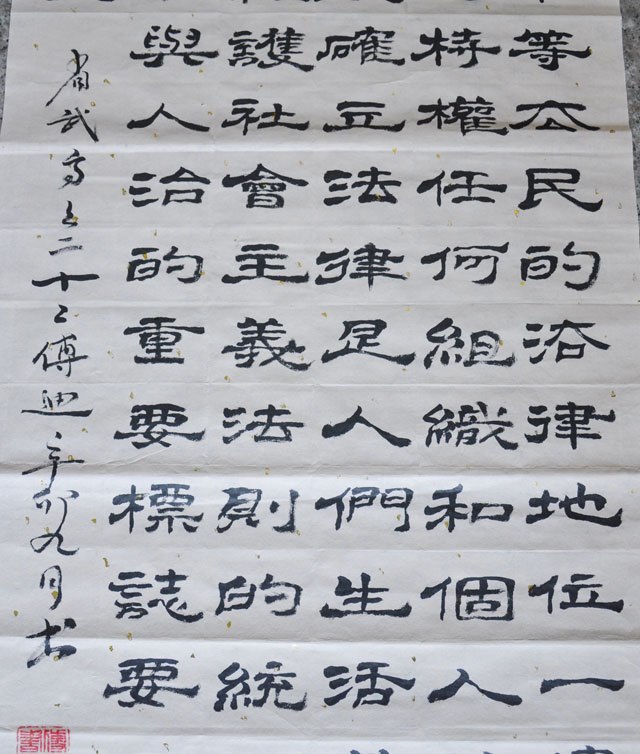 等公民的法律地位一
持權任何組織和個人
確立法律是人們生活
護社會主義法則的統
與人治的重要標誌要
肖武高二十傅迪辛卯九月书